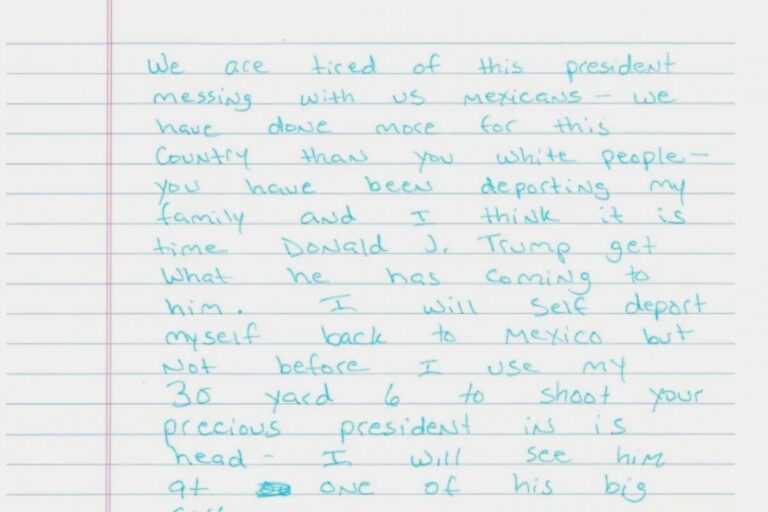 We are tired of this president
messing with us mexicans - we
have done more for this
Country than you white people-
you have been deporting my
family and I think it is
time Donald J. Trump get
What he has coming to
him. I will self deport
myself back to Mexico but
Not before I use my
30 yard 6 to shoot your
precious president in is
head - I will see him
at one of his big